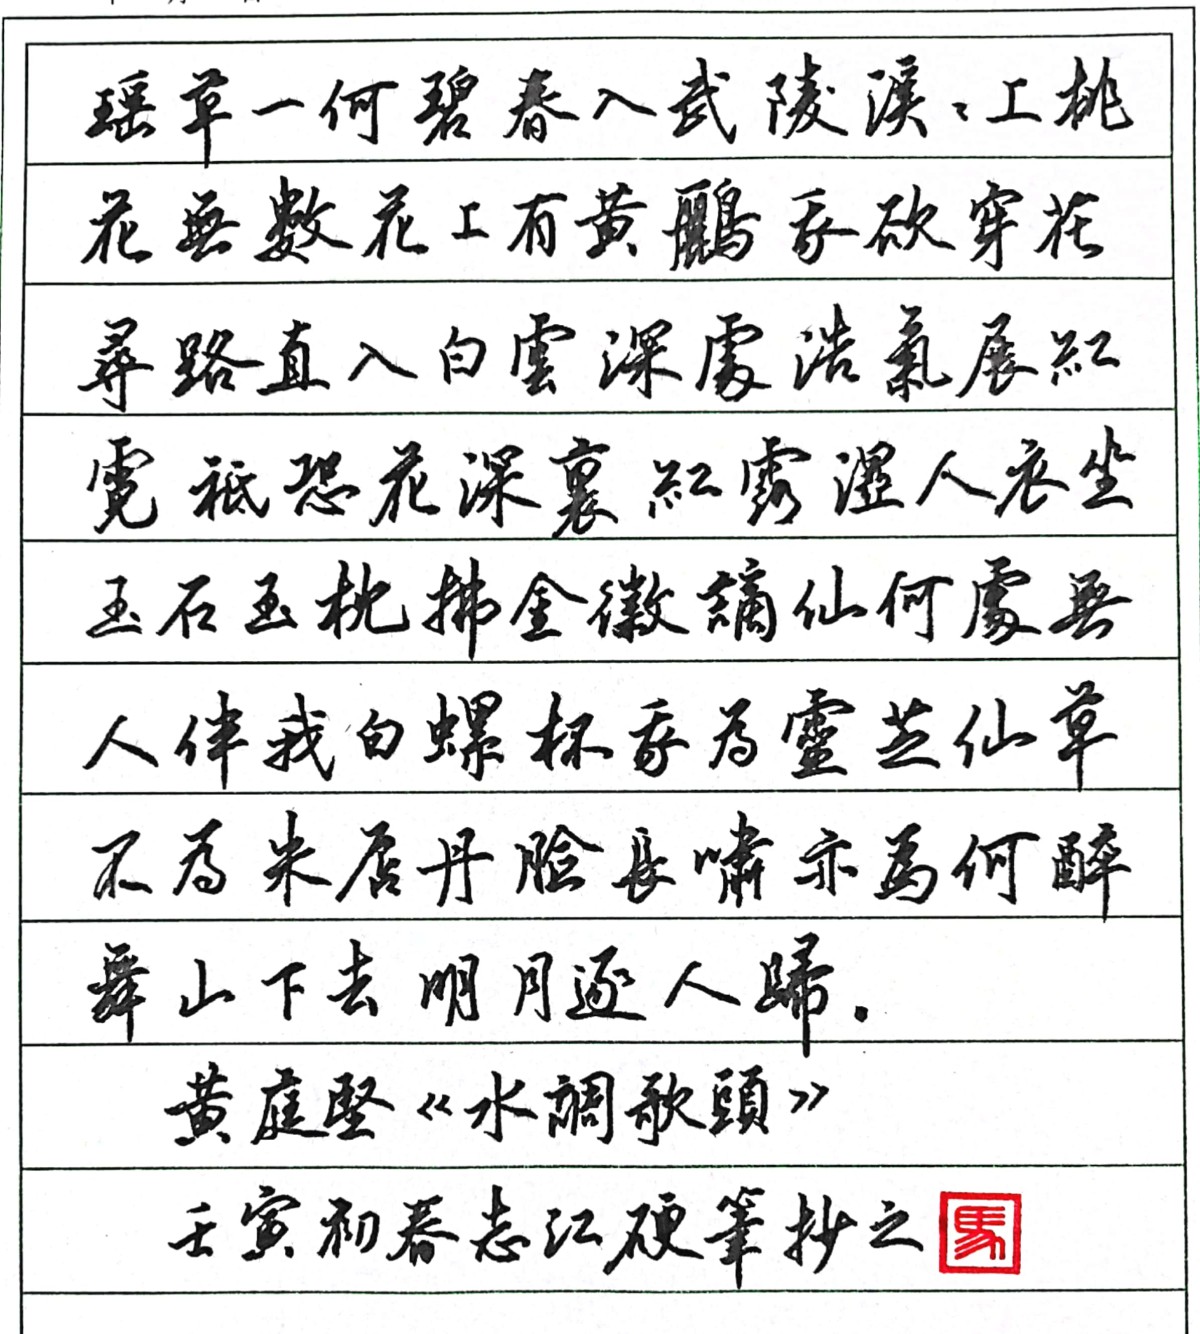 瑶草一何碧春入武陵溪〻上桃
花無數花上有黄鸝我欲穿花
尋路直入白雲深處浩氣展紅
霓祗恐花深裏紅露濕人衣坐
玉石玉枕拂金徽謫仙何處無
人伴我白螺杯我為靈芝仙草
不為朱唇丹臉長嘯亦為何醉
舞山下去明月逐人歸.
黄庭堅《水調歌頭》
壬寅初春志江硬筆抄之
馬